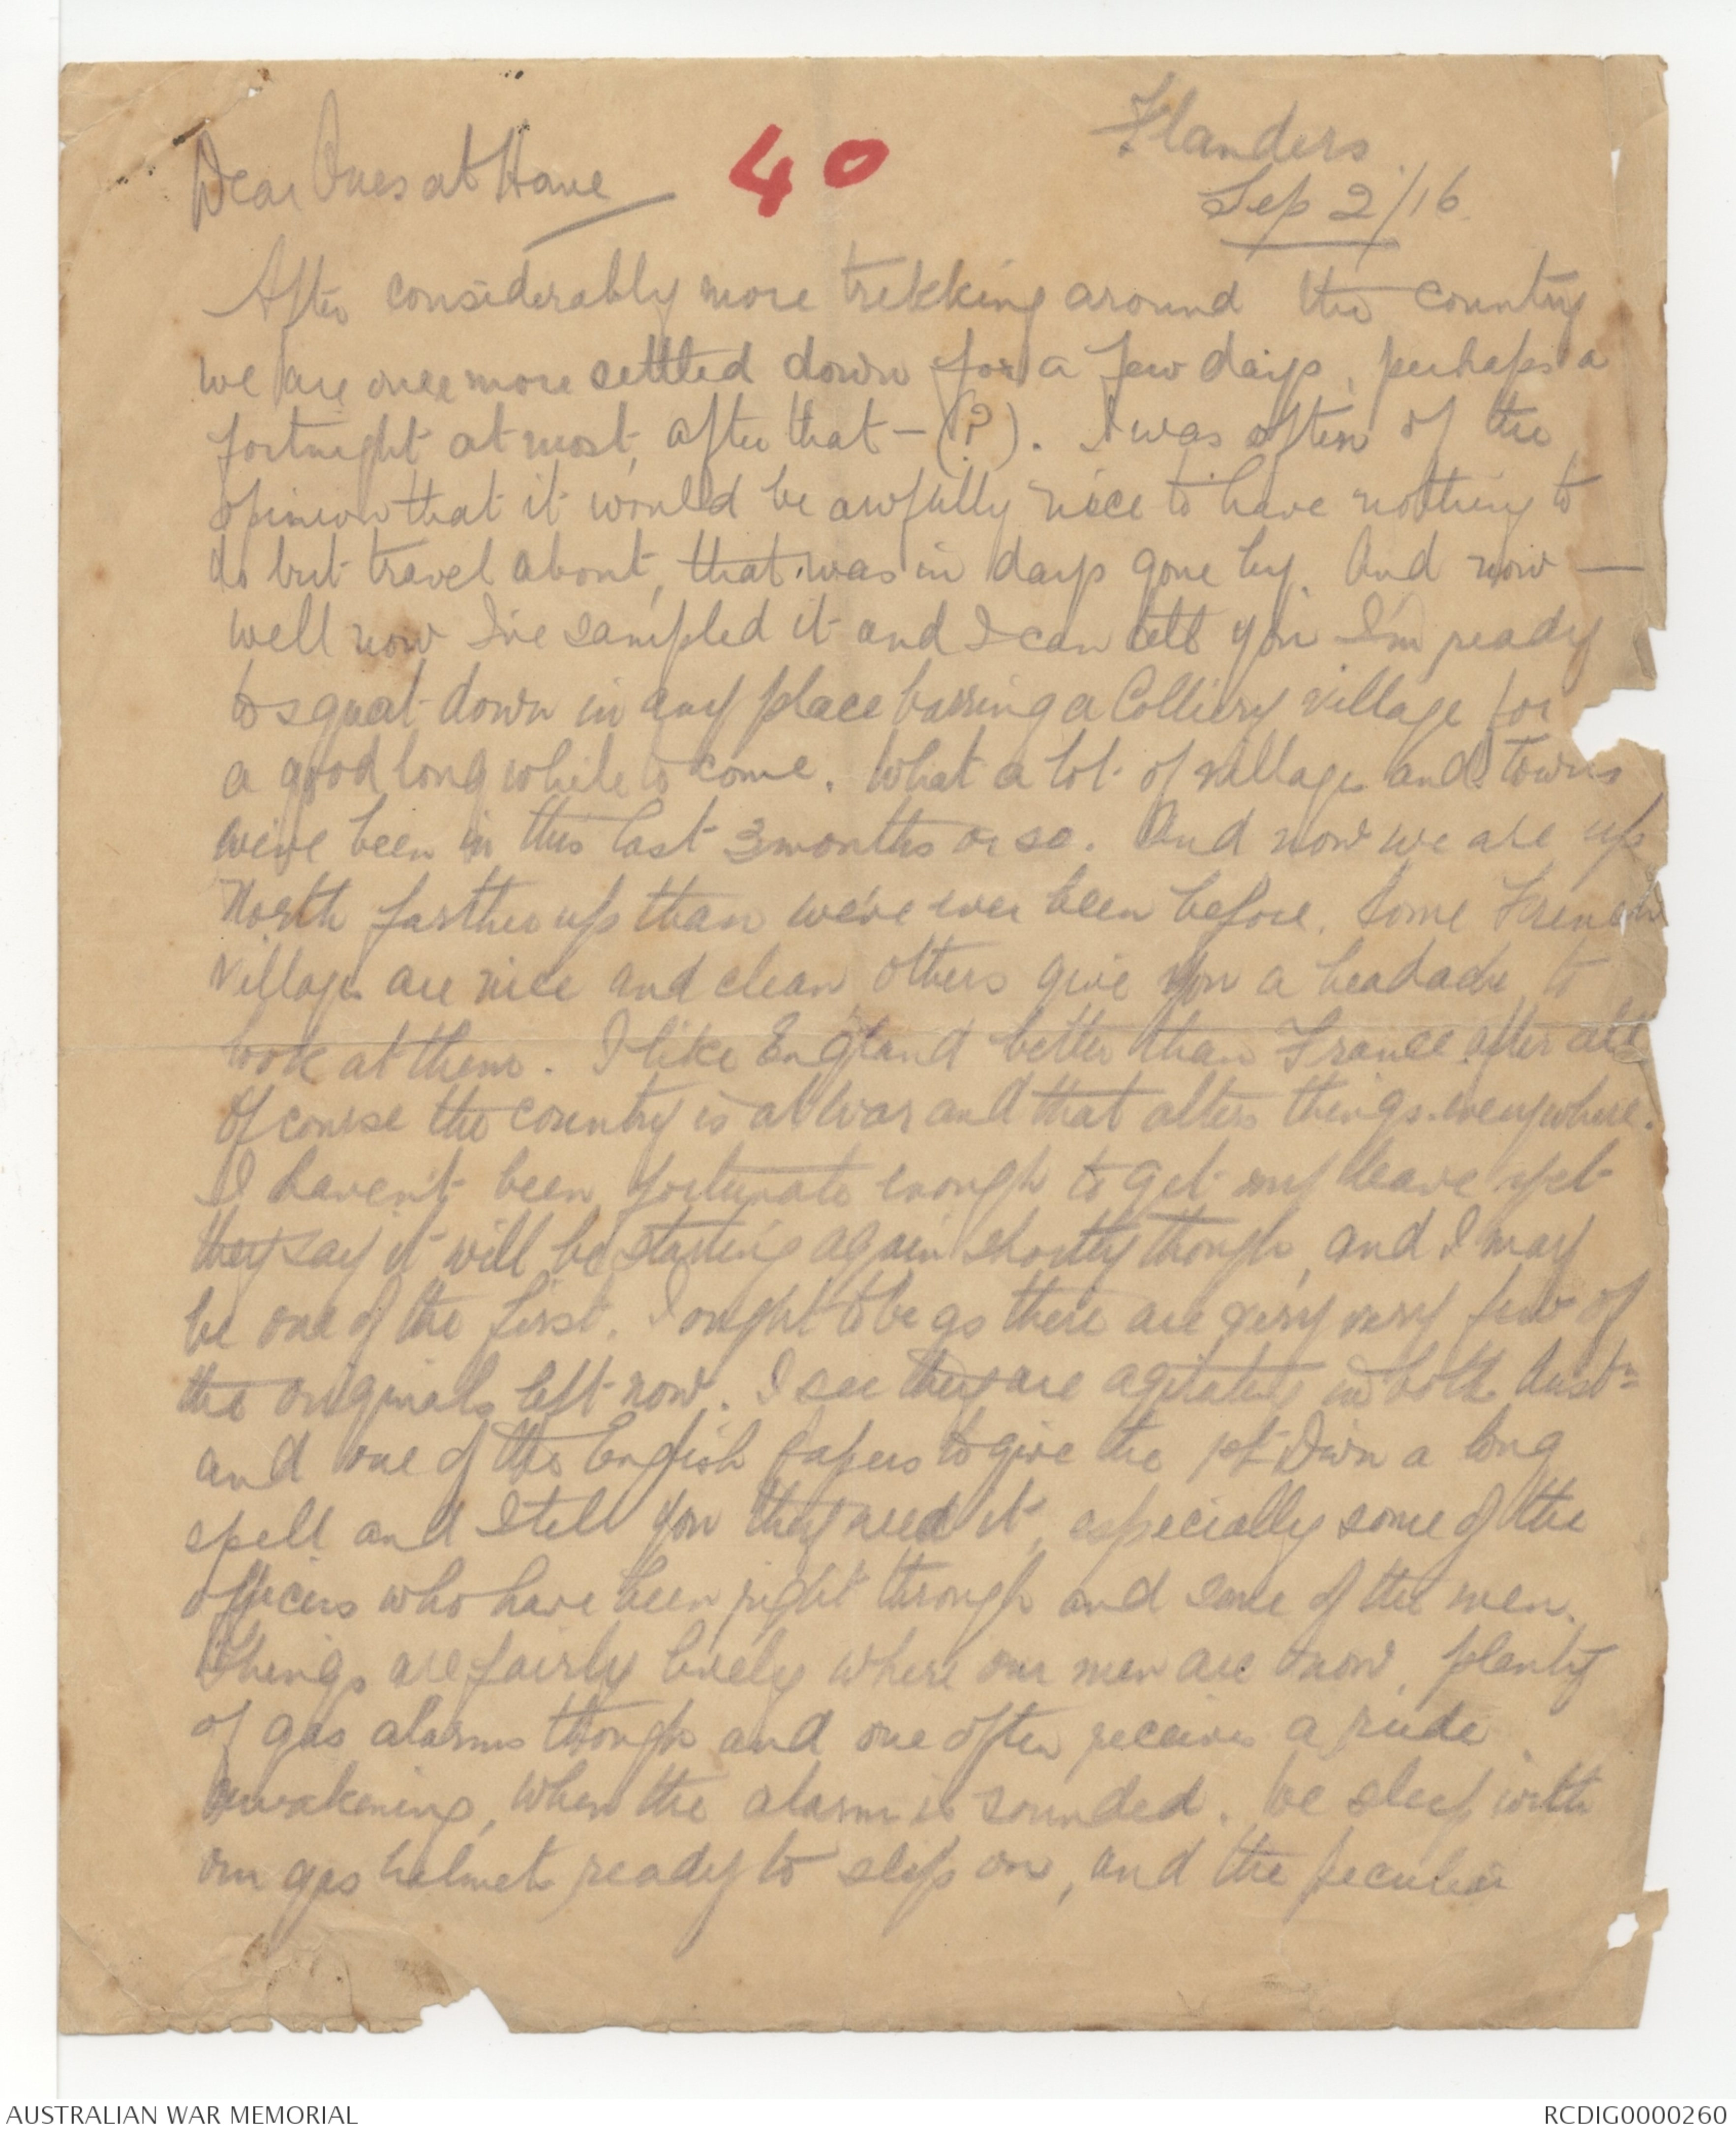 Flanders
Sep 2/16
Dear Ones at Home
40
After considerably more trekking around the country
we are once more settled down for a few days, perhaps a
fortnight at most, after that – (?). I was often of the
opinion that it would be awfully nice to have nothing to
do but travel about, that was in days gone by. And now —
well now I've sampled it and I can tell you I'm ready
to squat down in any place barring a Colliery village for
a good long while to come. What a lot of villages and towns
we've been in this last 3 months or so. And now we are up
North farther up than we've ever been before. Some French
villages are nice and clean others give you a headache to
look at them. I like England better than France after all
Of course the country is at war and that alters things everywhere.
I haven't been fortunate enough to get my leave yet
they say it will be starting again shortly though, and I may
be one of the first. I ought to be as there are very very few of
the originals left now. I see they are agitating in both Austn
and one of the English papers to give the 1st Divn a long
spell and I tell you they need it, especially some of the
officers who have been right through and some of the men.
Things are fairly lively where our men are now, plenty
of gas alarms though and one often receives a rude
awakening, when the alarm is sounded. We sleep with
our gas helmets ready to slip on, and the peculiar
AUSTRALIAN WAR MEMORIAL
RCDIG0000260